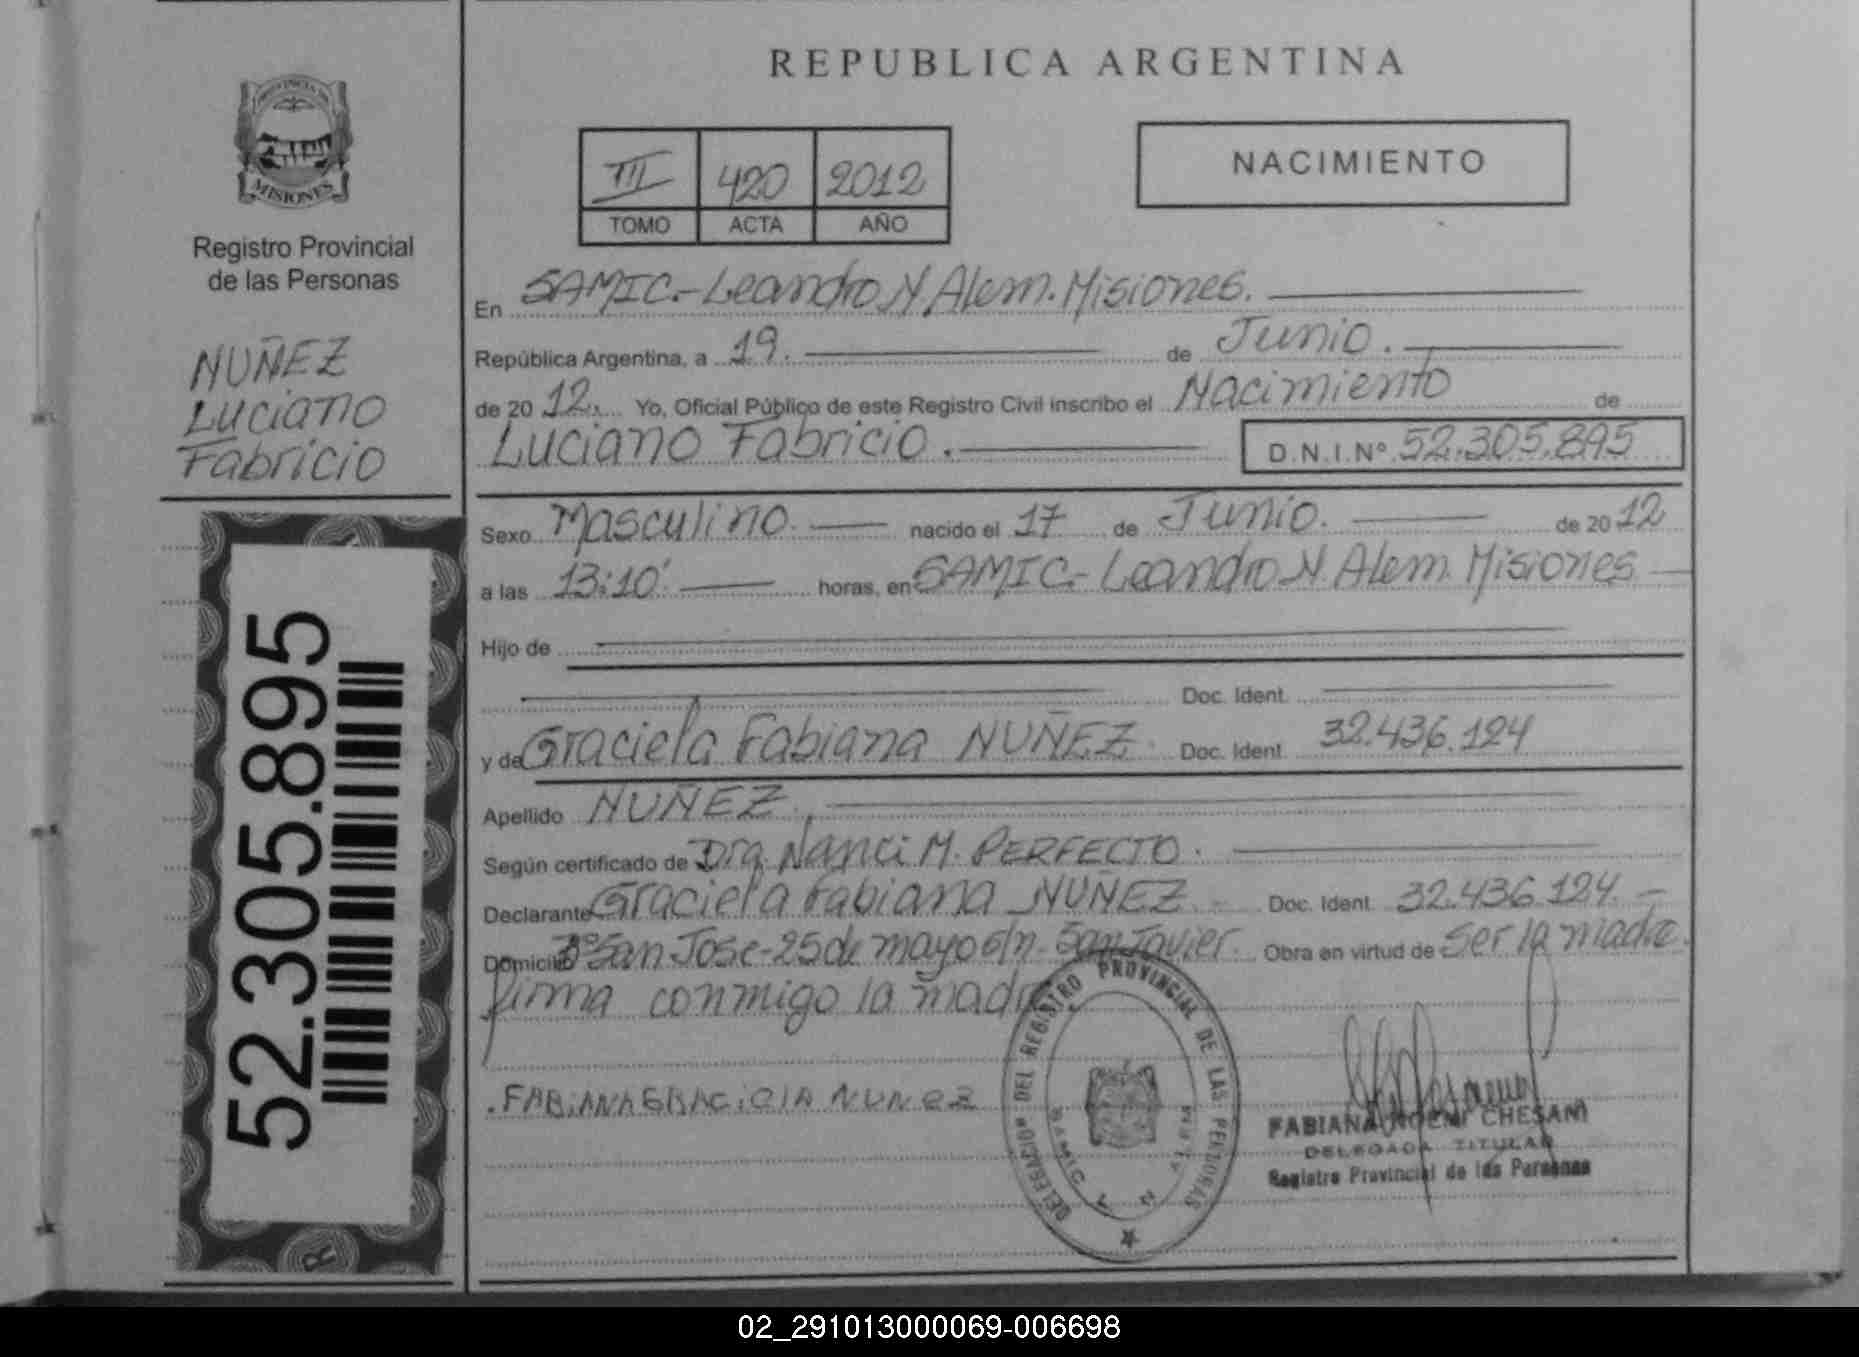 REPUBLICA ARGENTINA
PROVINCIA DE
MISIONES
Registro Provincial
de las Personas
NUÑEZ
Luciano
Fabricio
52.305.895
III 420 2012
TOMO ACTA AÑO
NACIMIENTO
En SAMIC.-Leandro N. Alem. Misiones.
República Argentina, a 19. de Junio.
de 2012. Yo, Oficial Público de este Registro Civil inscribo el Nacimiento de
Luciano Fabricio. D.N.I.Nº 52.305.895
Sexo Masculino. nacido el 17 de Junio. de 2012
a las 13:10' horas, en SAMIC.- Leandro N. Alem. Misiones
Hijo de
Doc. Ident.
y de Graciela Fabiana NUÑEZ. Doc. Ident. 32.436.124
Apellido NUÑEZ.
Según certificado de Dra. Nanci M. PERFECTO.
Declarante Graciela Fabiana NUÑEZ.- Doc. Ident. 32.436.124.-
Domicilio Bº San Jose-25 de mayo s/n. San Javier. Obra en virtud de ser la madre.
firma conmigo la madre
FABiANA GRACiElA NUNEZ
DELEGACION DEL REGISTRO PROVINCIAL DE LAS PERSONAS
SAMIC
FABIANA NOEMI CHESANI
DELEGADA TITULAR
Registro Provincial de las Personas
02_291013000069-006698